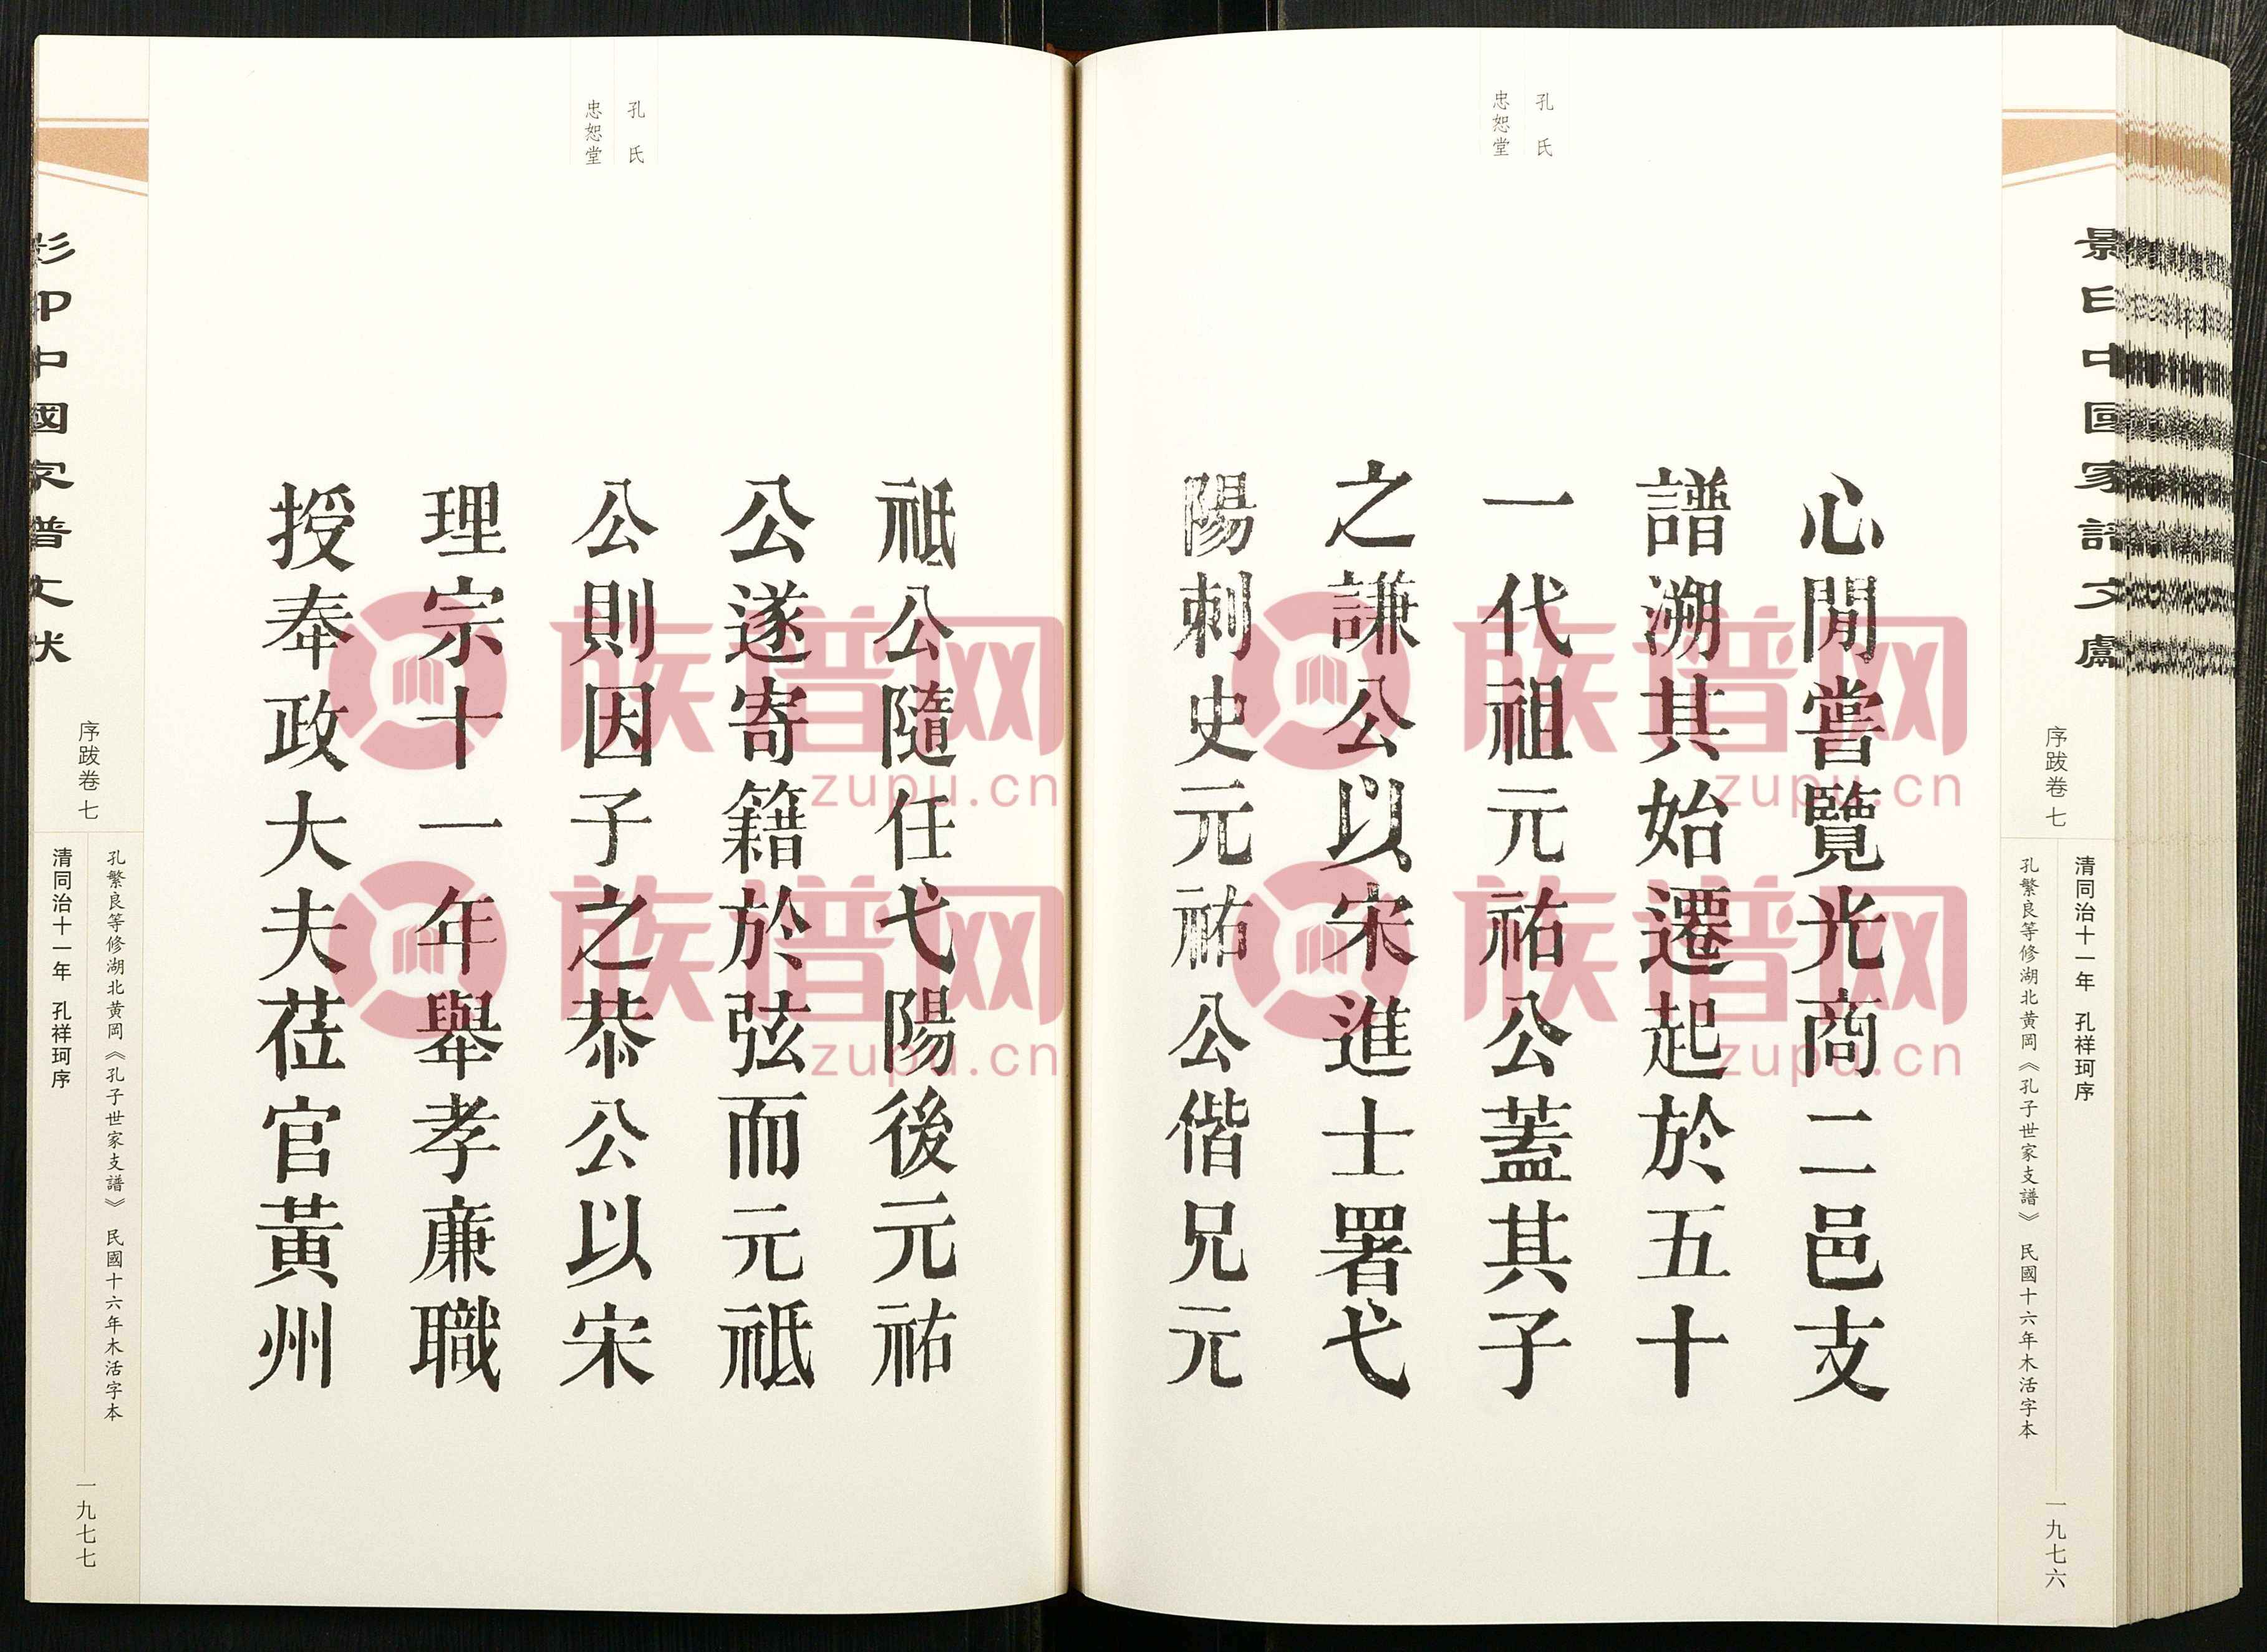 景印中國家譜文獻
序跋卷 七
清同治十一年 孔祥珂序
孔繁良等修湖北黃岡《孔子世家支譜》 民國十六年木活字本
一九七六
孔氏
忠恕堂
心閒嘗覽光商二邑支
譜溯其始遷起於五十
一代祖元祐公蓋其子
之謙公以宋進士署弋
陽刺史元祐公偕兄元
孔氏
忠恕堂
祗公隨任弋陽後元祐
公遂寄籍於弦而元祗
公則因子之恭公以宋
理宗十一年舉孝廉職
授奉政大夫莅官黃州
序跋卷 七
孔繁良等修湖北黃岡《孔子世家支譜》 民國十六年木活字本
清同治十一年 孔祥珂序
一九七七
影印中國家譜文獻
族谱网
zupu.cn
族谱网
zupu.cn
族谱网
zupu.cn
族谱网
zupu.cn